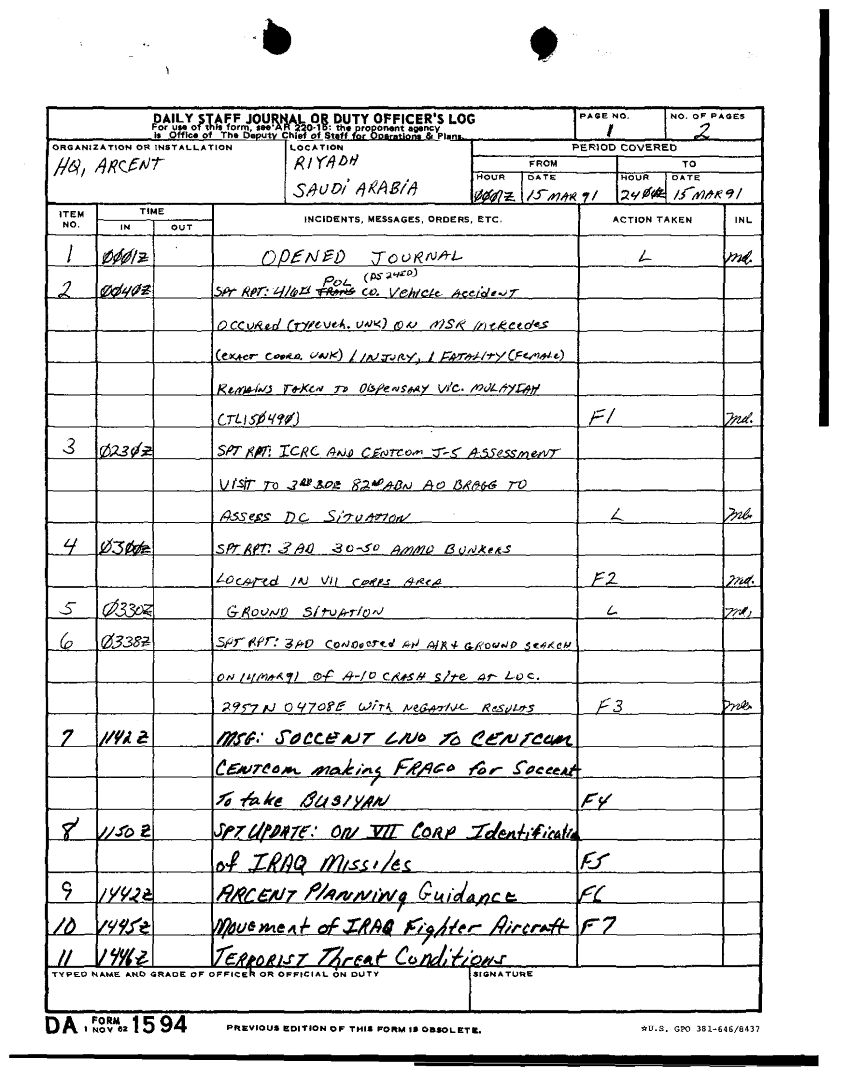 DAILY STAFF JOURNAL OR DUTY OFFICER'S LOG
For use of this form, see AR 220-15: the proponent agency
is Office of The Deputy Chief of Staff for Operations & Plans.
PAGE NO.
1
NO. OF PAGES
2
ORGANIZATION OR INSTALLATION
HQ, ARCENT
LOCATION
RIYADH
SAUDI ARABIA
PERIOD COVERED
FROM
TO
HOUR
DATE
HOUR
DATE
0001Z
15 MAR 91
2400Z
15 MAR 91
ITEM NO.
TIME
IN
OUT
INCIDENTS, MESSAGES, ORDERS, ETC.
ACTION TAKEN
INL
1 0001Z OPENED JOURNAL L md.
POL (DS 2450)
2 0040Z SPT RPT: 416th TRANS CO. Vehicle Accident
OCCURED (TYPE Veh. UNK) ON MSR Mercedes
(exact coord. UNK) 1 INJURY, 1 FATALITY (Female)
Remains TAKEN TO DISPENSARY VIC. MULAYIAH
(TL150490) F1 md.
3 0230Z SPT RPT: ICRC AND CENTCOM J-5 ASSESSMENT
VISIT TO 3RD BDE 82ND ABN AO BRAGG TO
ASSESS DC SITUATION L
4 0300Z SPT RPT: 3AD 30-50 AMMO BUNKERS
LOCATED IN VII CORPS AREA F2 md.
5 0330Z GROUND SITUATION L
6 0338Z SPT RPT: 3AD CONDUCTED AN AIR + GROUND SEARCH
ON 14 MAR 91 OF A-10 CRASH SITE AT LOC.
2957N 04708E WITH NEGATIVE RESULTS F3
7 1142Z MSG: SOCCENT LNO TO CENTCOM
CENTCOM making FRAGO for Soccent
To take BUSIYAN F4
8 1150Z SPT UPDATE: ON VII CORP Identificatio
of IRAQ Missiles F5
9 1442Z ARCENT PLANNING Guidance F6
10 1445Z Movement of IRAQ Fighter Aircraft F7
11 1446Z TERRORIST Threat Conditions
TYPED NAME AND GRADE OF OFFICER OR OFFICIAL ON DUTY
SIGNATURE
DA FORM 1 NOV 62 1594
PREVIOUS EDITION OF THIS FORM IS OBSOLETE.
☆U.S. GPO 381-646/8437